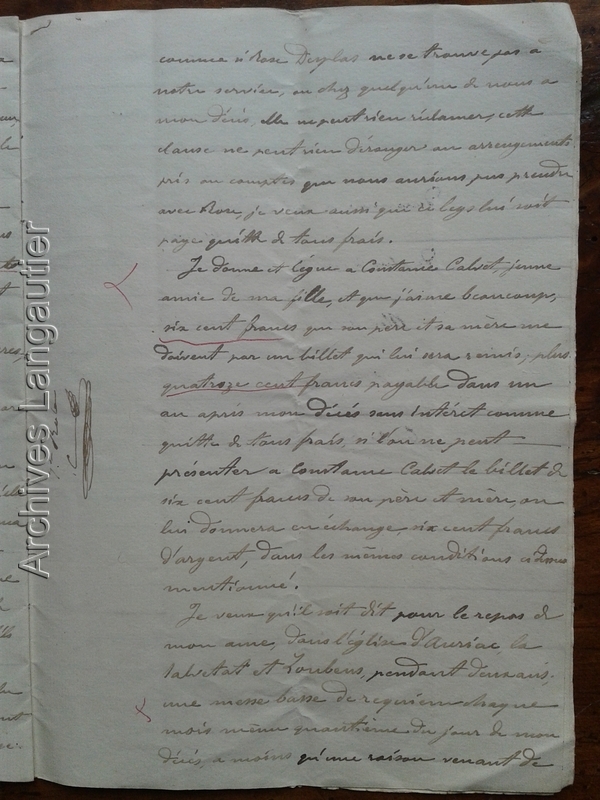 comme si Rose Desplas ne se trouve pas à
notre service, ou chez quelqu'un de nous a
mon décès, elle ne peut rien réclamer, cette
clause ne peut rien déranger au arrengements
pris ou comptes que nous aurions pus prendre
avec Rose, je veux aussi que ce legs lui soit
payé quitte de tous frais.
Je donne et lègue a Constance Calvet, jeune
amie de ma fille, et que j'aime beaucoup,
six cent francs que son père et sa mère me
doivent par un billet qui lui sera remis, plus
quatroze cent francs payable dans un
an après mon décès sans intéret comme
quitte de tous frais, si l'on ne peut
présenter a Constance Calvet le billet de
six cent francs de son père et mère, on
lui donnera en échange, six cent francs
d'argent, dans les mêmes conditions cidessus
mentionné.
Je veux qu'il soit dit pour le repos de
mon ame, dans l'église d'Auriac, la
Salvetat et Loubens, pendant deux ans,
une messe basse de requiem chaque
mois même quantième du jour de mon
décés, a moins qu'une raison venant de
Archives Langautier